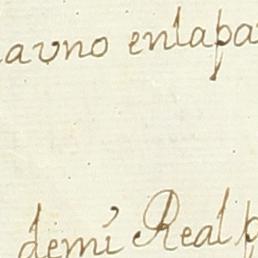 auno enlapa
demi Real p